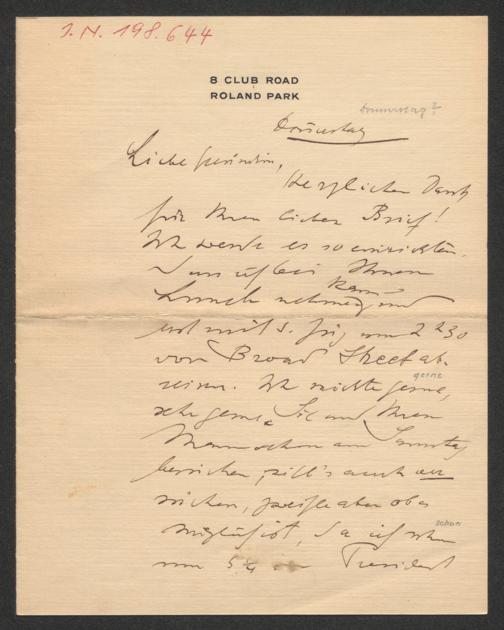 I.N. 198.644
8 CLUB ROAD
ROLAND PARK
Donnerstag?
Donnerstag
Liebe Freundin,
Herzlichen Dank
für Ihren lieben Brief!
Ich werde es so einrichten,
dass ich bei Ihnen
Lunch nehmen kann und
erst mit d. Zug um 2 h 30
von Broad Street ab
reisen. Ich möchte gerne, gerne
sehr gerne Sie und Ihren
Mann schon am Samstag
besuchen, will's auch ver
suchen, zweifle aber ob es
möglich ist, da ich schon schon
um 5¼ President